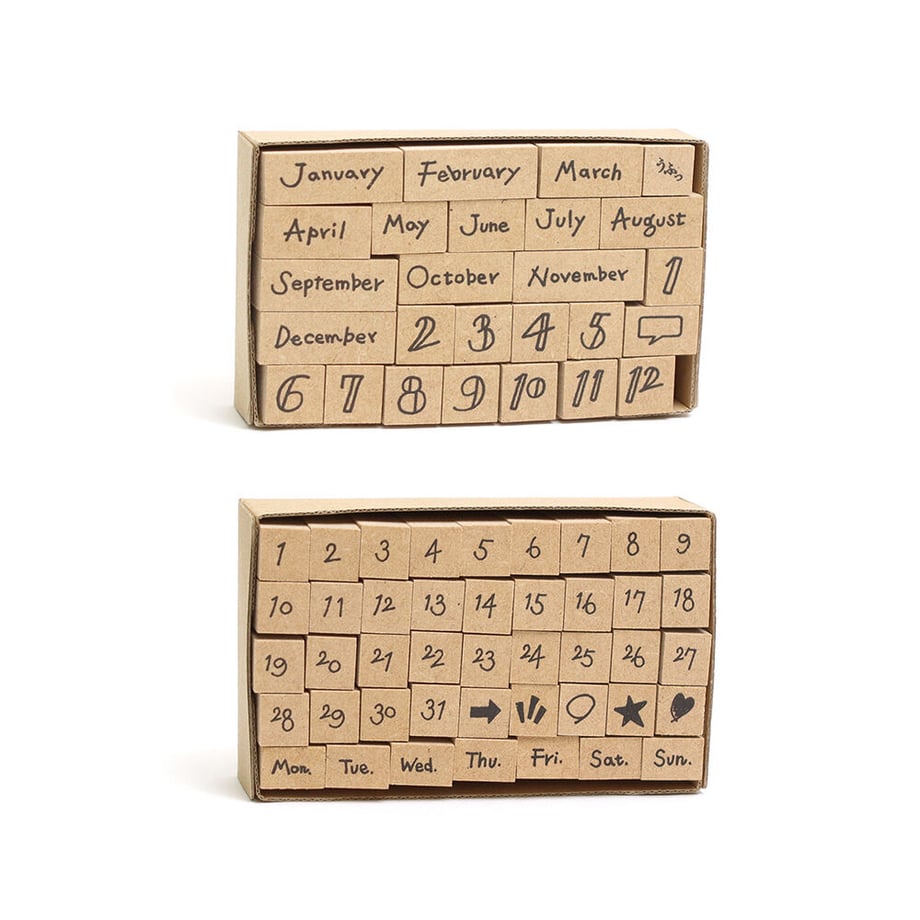 January February March うふっ
April May June July August
September October November 1
December 2 3 4 5
6 7 8 9 10 11 12
1 2 3 4 5 6 7 8 9
10 11 12 13 14 15 16 17 18
19 20 21 22 23 24 25 26 27
28 29 30 31
Mon. Tue. Wed. Thu. Fri. Sat. Sun.